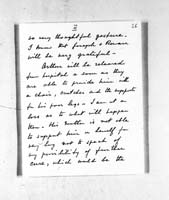 26
so very thoughtful gesture.
I know that Joseph & Rowan
will be very grateful.
Arthur will be released
from hospital as soon as they
are able to provide him with
a chair, crutches and the supports
for his poor legs. I am at a
loss as to what will happen
then. His mother is not able
to support him or herself for
very long not to speak of
any possibility of further
care, which would be the